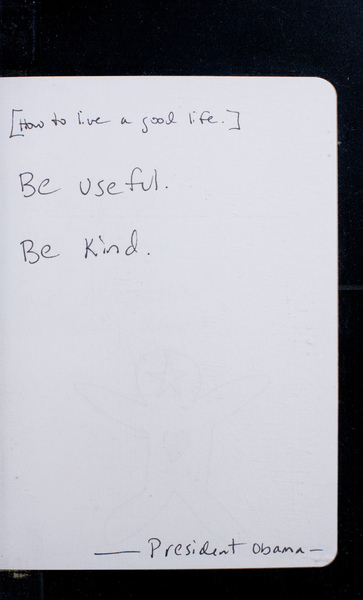 [How to live a good life.]
Be useful.
Be kind.
— President Obama —